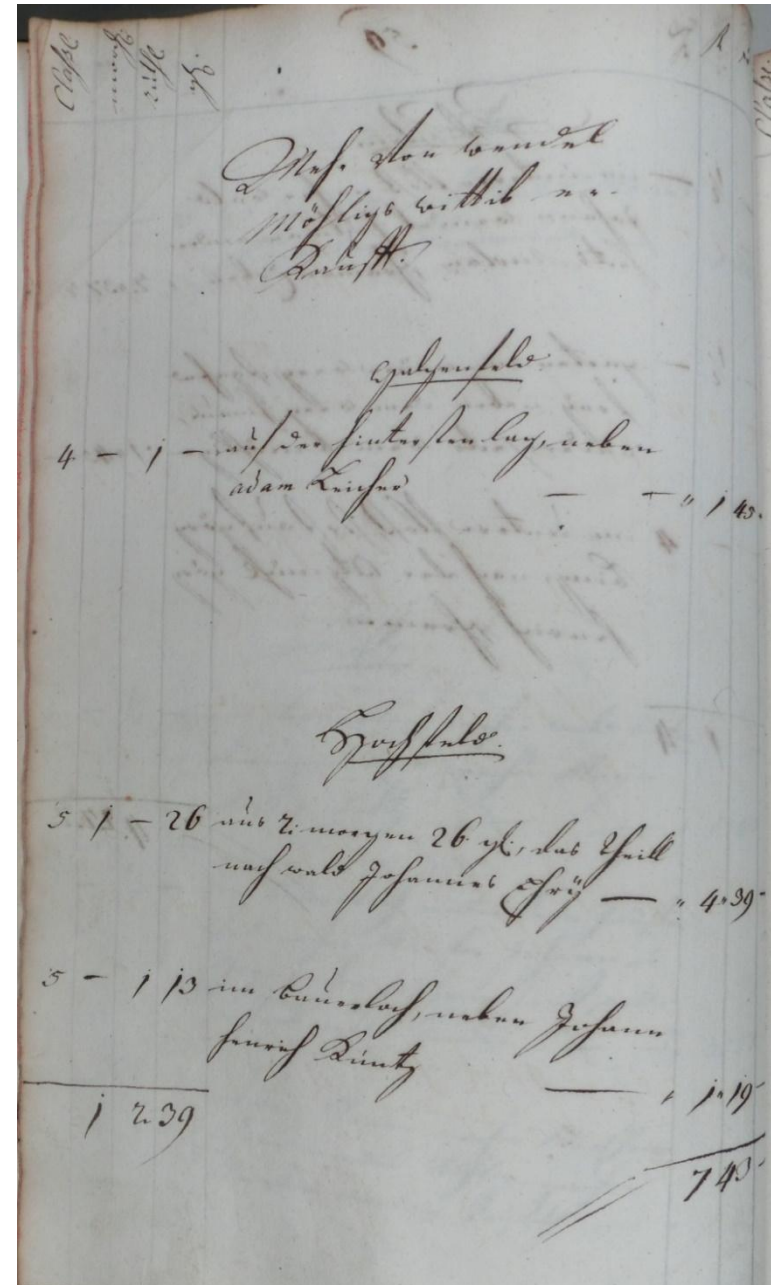 Claße
Morgen
Vrtl
Rh.
Mehr von wendel
Möhligs wittib er-
Kaufft.
Galgenfeld
4 – 1 – auf der hintersten lach, neben
adam Reicher — — " 1 45.
Hochfeld.
5 1 – 26 aus 2. morgen 26 rh, das Theill
nach wald Johannes Phrÿ — " 4 " 39
5 – 1 13 im bauerloch, neben Johann
henrich Küntz — " 1 " 19
1 2 39
7 43